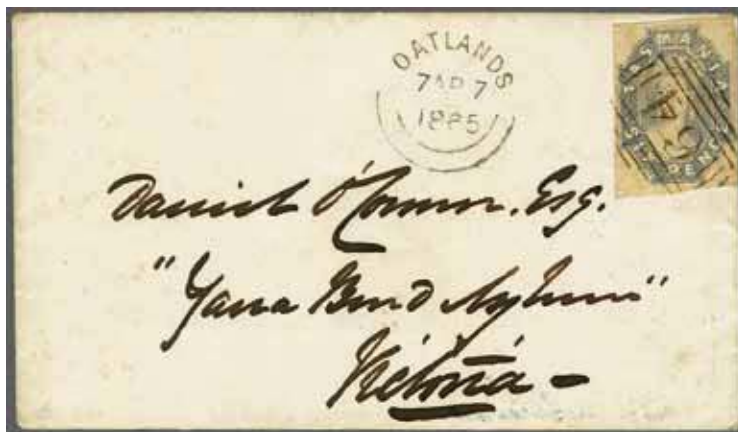 OATLANDS
7 AP 7
TASMANIA
SIX PENCE
54
Daniel O'Connor. Esq.
"Yarra Bend Asylum"
Victoria –